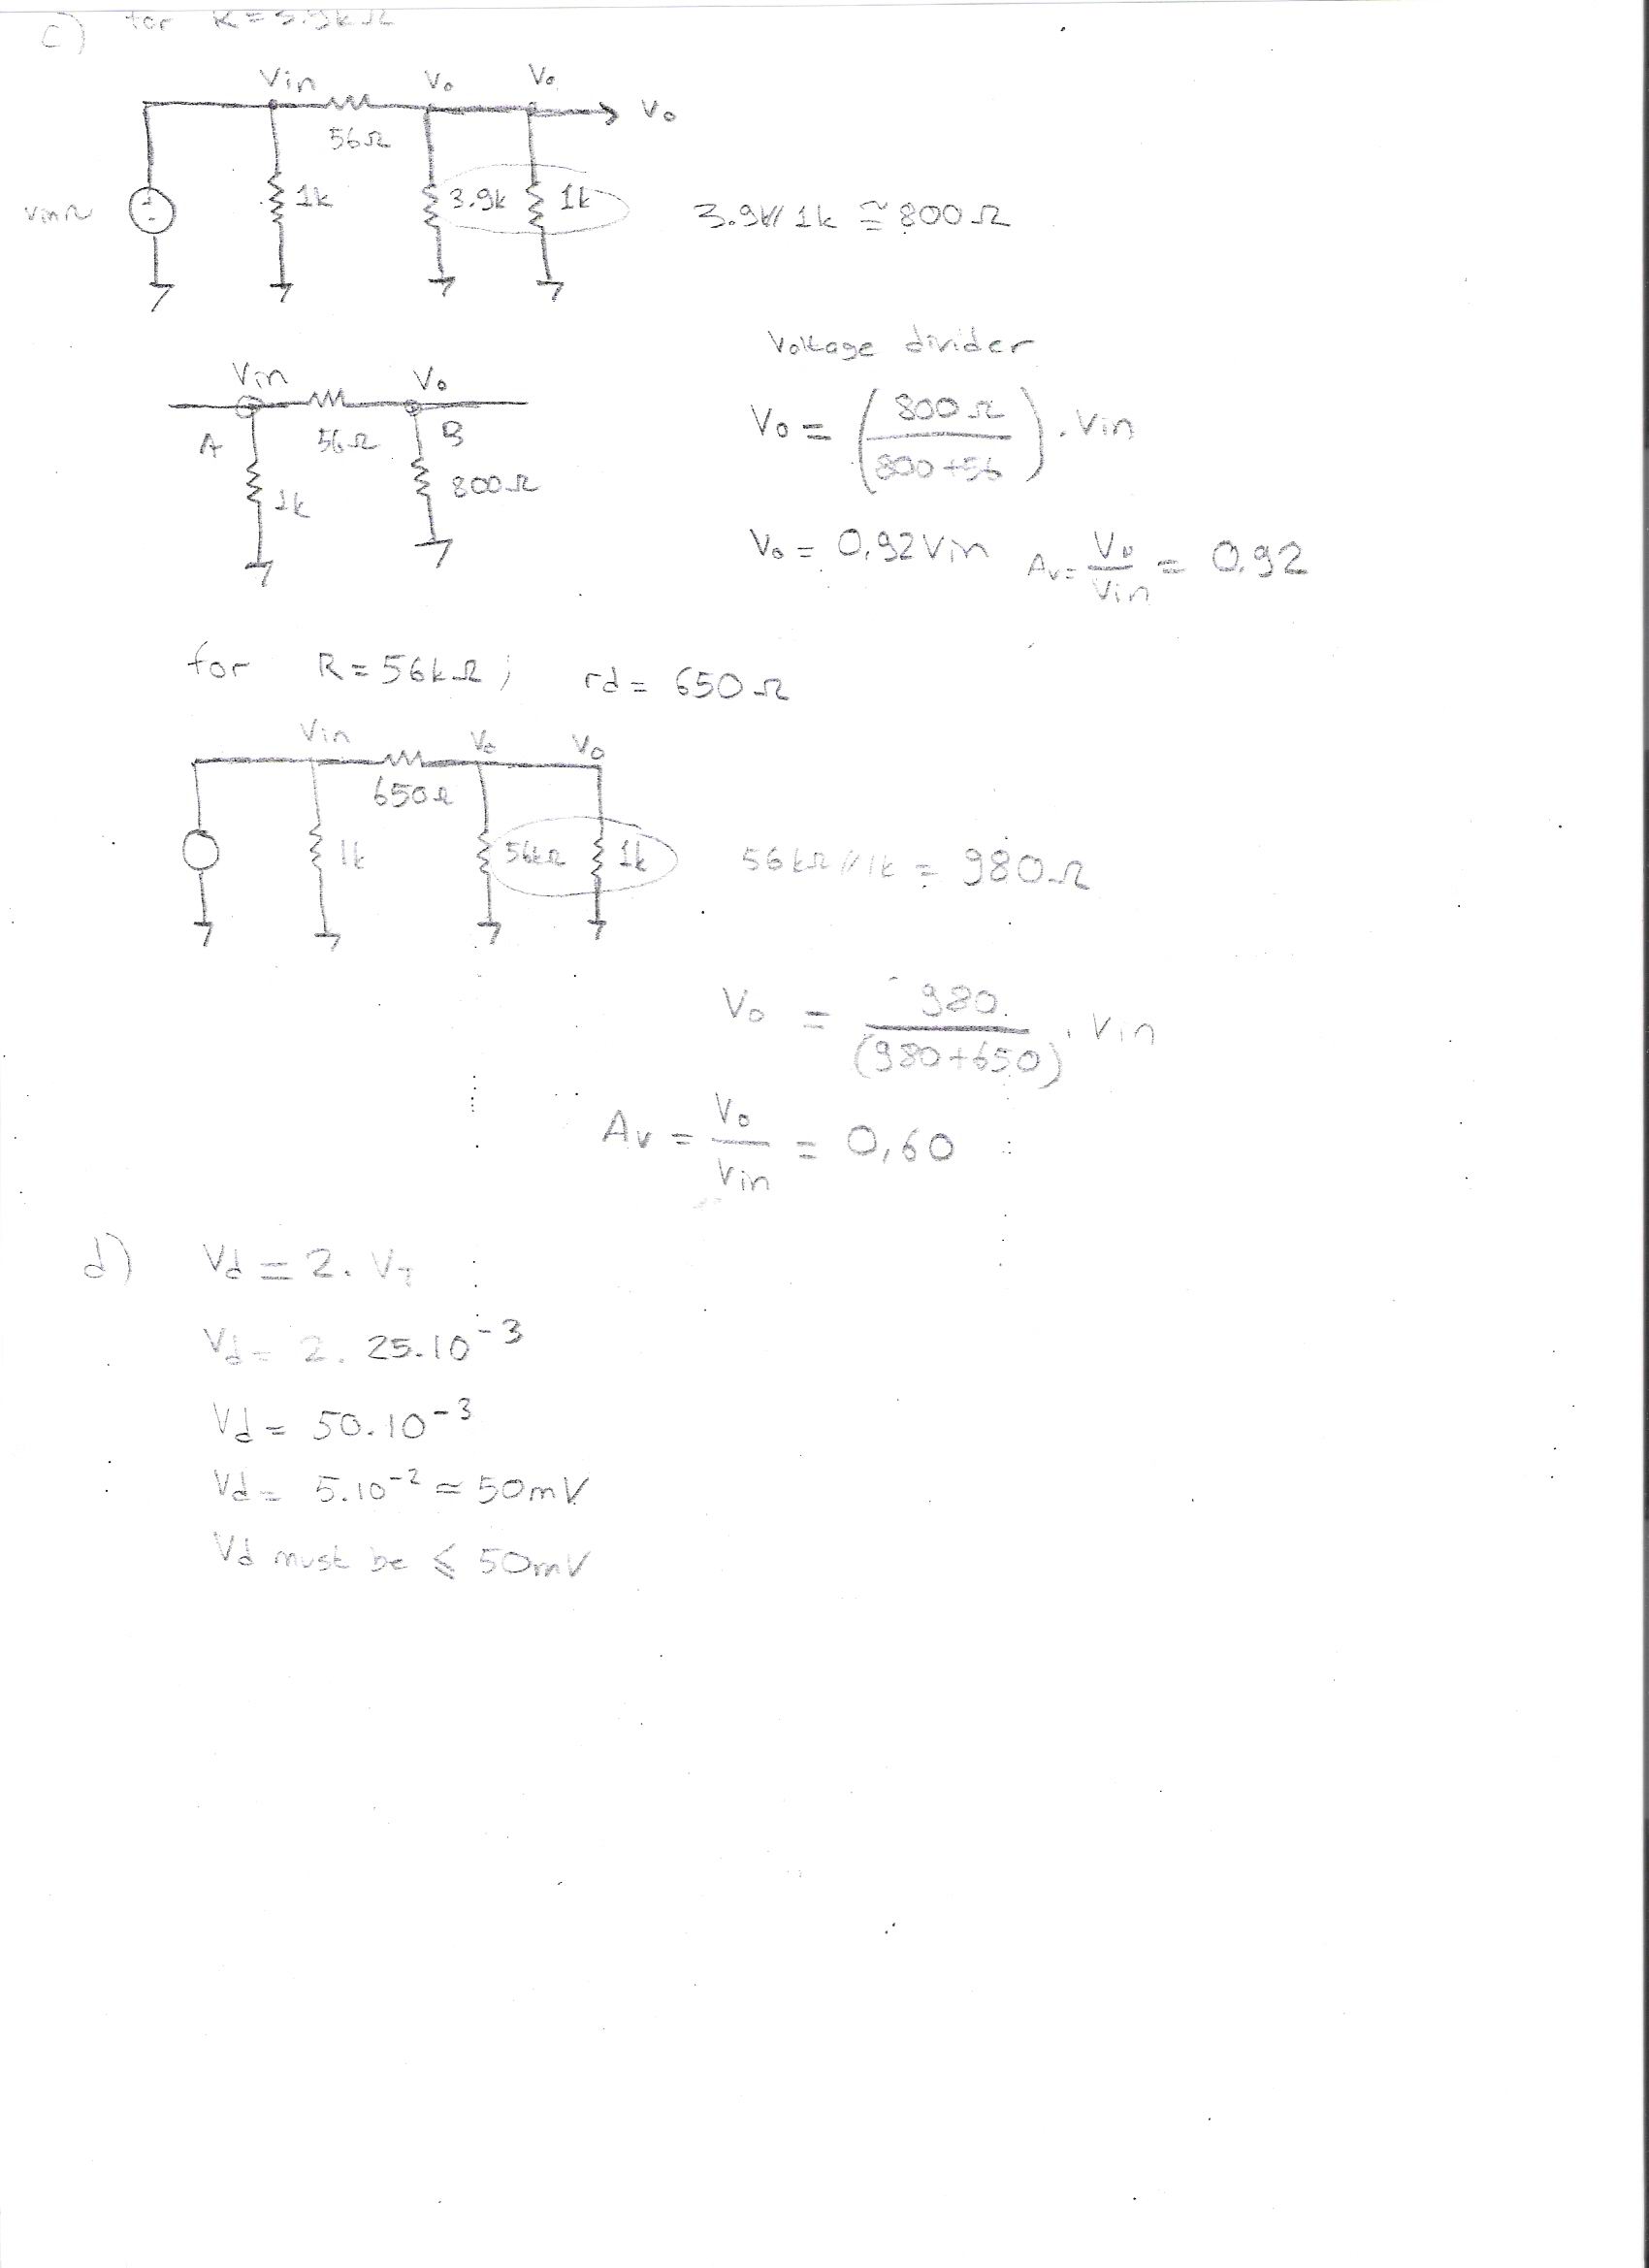 c) for R = 3.9kΩ
Vin Vo Vo
Vo
56Ω
Vin~ 1k 3.9k 1k 3.9k//1k ≅ 800Ω
Voltage divider
Vin Vo
A 56Ω B
1k 800Ω
Vo = (800Ω / 800+56) . Vin
Vo = 0.92Vin Av = Vo/Vin = 0.92
for R = 56kΩ; rd = 650Ω
Vin Vo Vo
650Ω
1k 56kΩ 1k 56kΩ//1k = 980Ω
Vo = 980 / (980+650) . Vin
Av = Vo/Vin = 0,60
d) Vd = 2. VT
Vd = 2. 25.10⁻³
Vd = 50.10⁻³
Vd = 5.10⁻² ≃ 50mV
Vd must be ≤ 50mV